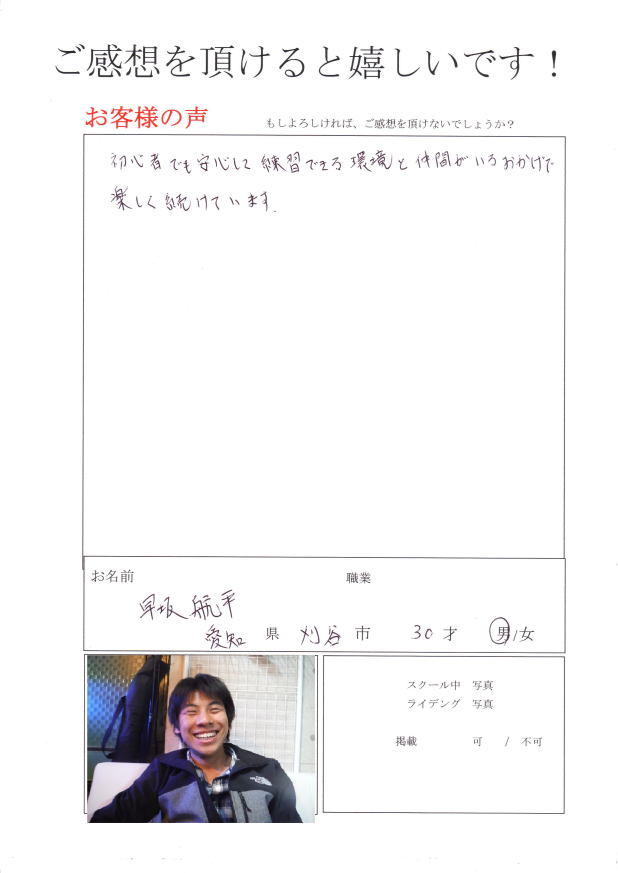 ご感想を頂けると嬉しいです！
お客様の声 もしよろしければ、ご感想を頂けないでしょうか？
初心者でも安心して練習できる環境と仲間がいるおかげで
楽しく続けています.
お名前 職業
早坂 航平
愛知 県 刈谷 市 30 才 男/女
スクール中 写真
ライデング 写真
掲載 可 / 不可
THE NORTH FACE